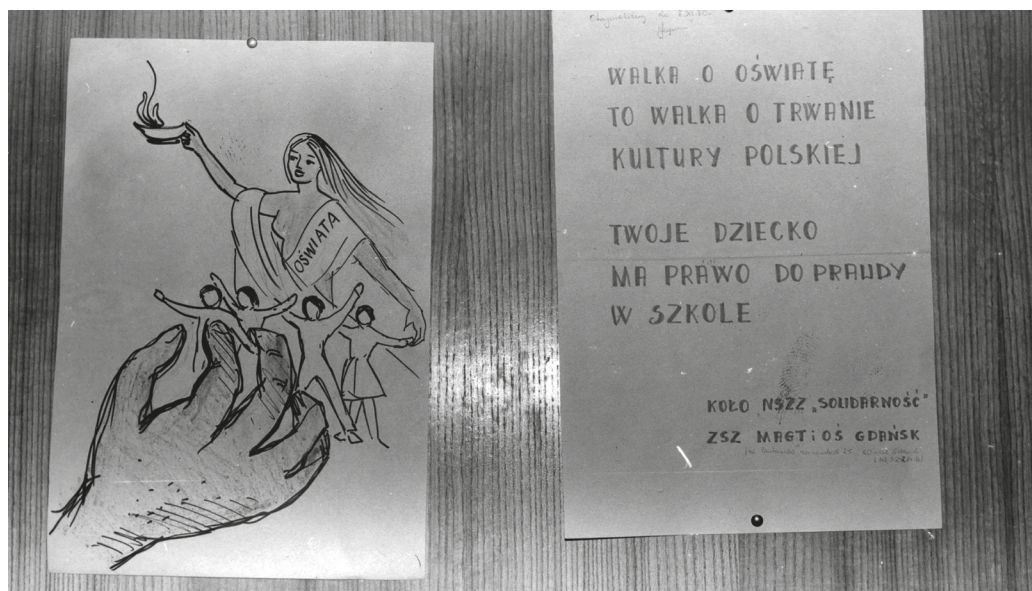 OŚWIATA
WALKA O OŚWIATĘ
TO WALKA O TRWANIE
KULTURY POLSKIEJ
TWOJE DZIECKO
MA PRAWO DO PRAWDY
W SZKOLE
KOŁO NSZZ „SOLIDARNOŚĆ"
ZSZ MAGT i OŚ GDAŃSK